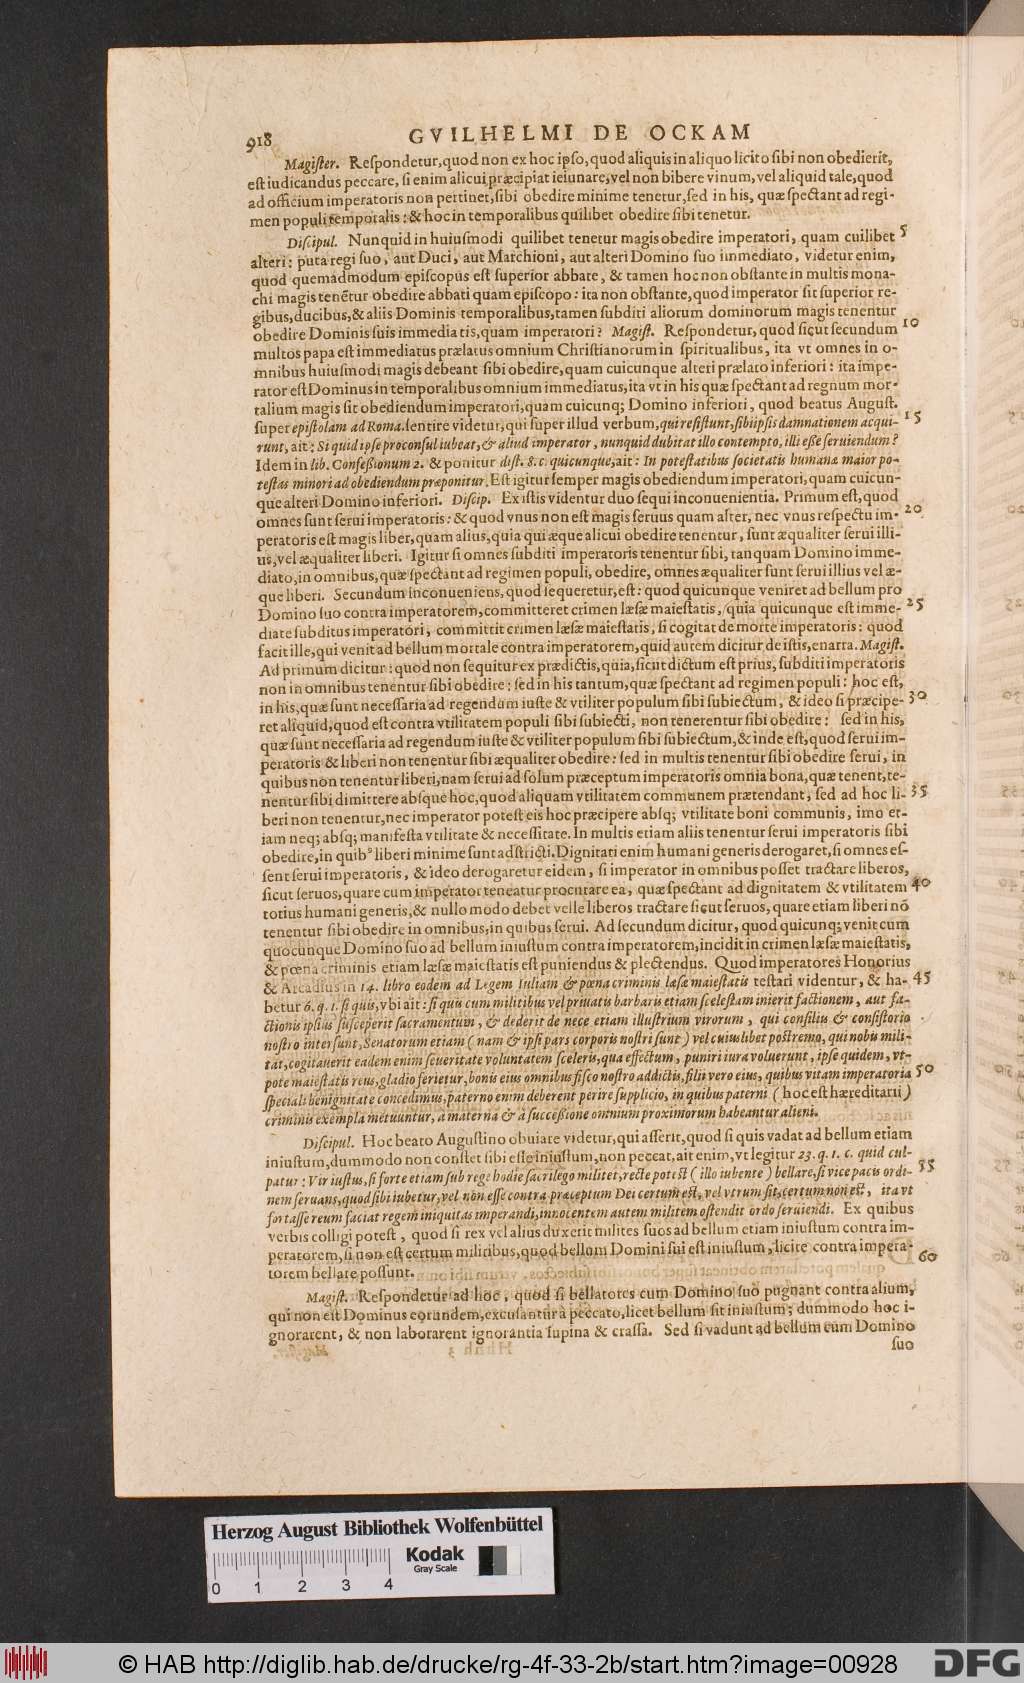 918 GVILHELMI DE OCKAM
Magister. Respondetur, quod non ex hoc ipso, quod aliquis in aliquo licito sibi non obedierit,
est iudicandus peccare, si enim alicui præcipiat ieiunare, vel non bibere vinum, vel aliquid tale, quod
ad officium imperatoris non pertinet, sibi obedire minime tenetur, sed in his, quæ spectant ad regi-
men populi temporalis: & hoc in temporalibus quilibet obedire sibi tenetur.
Discipul. Nunquid in huiusmodi quilibet tenetur magis obedire imperatori, quam cuilibet 5
alteri: puta regi suo, aut Duci, aut Marchioni, aut alteri Domino suo immediato, videtur enim,
quod quemadmodum episcopus est superior abbate, & tamen hoc non obstante in multis mona-
chi magis tenẽtur obedire abbati quam episcopo: ita non obstante, quod imperator sit superior re-
gibus, ducibus, & aliis Dominis temporalibus, tamen subditi aliorum dominorum magis tenentur
obedire Dominis suis immediatis, quam imperatori? Magist. Respondetur, quod sicut secundum 10
multos papa est immediatus prælatus omnium Christianorum in spiritualibus, ita vt omnes in o-
mnibus huiusmodi magis debeant sibi obedire, quam cuicunque alteri prælato inferiori: ita impe-
rator est Dominus in temporalibus omnium immediatus, ita vt in his quæ spectant ad regnum mor-
talium magis sit obediendum imperatori, quam cuicunq; Domino inferiori, quod beatus August.
super epistolam ad Roma. sentire videtur, qui super illud verbum, qui resistunt, sibi ipsis damnationem acqui- 15
runt, ait: Si quid ipse proconsul iubeat, & aliud imperator, nunquid dubitat illo contempto, illi esse seruiendum?
Idem in lib. Confessionum 2. & ponitur dist. 8. c. quicunque, ait: In potestatibus societatis humanæ maior po-
testas minori ad obediendum præponitur. Est igitur semper magis obediendum imperatori, quam cuicun-
que alteri Domino inferiori. Discip. Ex istis videntur duo sequi inconuenientia. Primum est, quod
omnes sunt serui imperatoris: & quod vnus non est magis seruus quam alter, nec vnus respectu im- 20
peratoris est magis liber, quam alius, quia qui æque alicui obedire tenentur, sunt æqualiter serui illi-
us, vel æqualiter liberi. Igitur si omnes subditi imperatoris tenentur sibi, tanquam Domino imme-
diato, in omnibus, quæ spectant ad regimen populi, obedire, omnes æqualiter sunt serui illius vel æ-
que liberi. Secundum inconueniens, quod sequeretur, est: quod quicunque veniret ad bellum pro
Domino suo contra imperatorem, committeret crimen læsæ maiestatis, quia quicunque est imme- 25
diate subditus imperatori, committit crimen læsæ maiestatis, si cogitat de morte imperatoris: quod
facit ille, qui venit ad bellum mortale contra imperatorem, quid autem dicitur de istis, enarra. Magist.
Ad primum dicitur: quod non sequitur ex prædictis, quia, sicut dictum est prius, subditi imperatoris
non in omnibus tenentur sibi obedire: sed in his tantum, quæ spectant ad regimen populi: hoc est,
in his, quæ sunt necessaria ad regendum iuste & vtiliter populum sibi subiectum, & ideo si præcipe- 30
ret aliquid, quod est contra vtilitatem populi sibi subiecti, non tenerentur sibi obedire: sed in his,
quæ sunt necessaria ad regendum iuste & vtiliter populum sibi subiectum, & inde est, quod serui im-
peratoris & liberi non tenentur sibi æqualiter obedire: sed in multis tenentur sibi obedire serui, in
quibus non tenentur liberi, nam serui ad solum præceptum imperatoris omnia bona, quæ tenent, te-
nentur sibi dimittere absque hoc, quod aliquam vtilitatem communem prætendant, sed ad hoc li- 35
beri non tenentur, nec imperator potest eis hoc præcipere absq; vtilitate boni communis, imo et-
iam neq; absq; manifesta vtilitate & necessitate. In multis etiam aliis tenentur serui imperatoris sibi
obedire, in quibꝰ liberi minime sunt adstricti. Dignitati enim humani generis derogaret, si omnes es-
sent serui imperatoris, & ideo derogaretur eidem, si imperator in omnibus posset tractare liberos,
sicut seruos, quare cum imperator teneatur procurare ea, quæ spectant ad dignitatem & vtilitatem 40
totius humani generis, & nullo modo debet velle liberos tractare sicut seruos, quare etiam liberi nō
tenentur sibi obedire in omnibus, in quibus serui. Ad secundum dicitur, quod quicunq; venit cum
quocunque Domino suo ad bellum iniustum contra imperatorem, incidit in crimen læsæ maiestatis,
& pœna criminis etiam læsæ maiestatis est puniendus & plectendus. Quod imperatores Honorius
& Arcadius in 14. libro eodem ad Legem Iuliam & pœna criminis læsæ maiestatis testari videntur, & ha- 45
betur 6. q. 1. si quis, vbi ait: si quis cum militibus vel priuatis barbaris etiam scelestam inierit factionem, aut fa-
ctionis ipsius susceperit sacramentum, & dederit de nece etiam illustrium virorum, qui consiliis & consistorio
nostro intersunt, Senatorum etiam (nam & ipsi pars corporis nostri sunt) vel cuiuslibet postremo, qui nobis mili-
tat, cogitauerit eadem enim seueritate voluntatem sceleris, qua effectum, puniri iura voluerunt, ipse quidem, vt-
pote maiestatis reus, gladio ferietur, bonis eius omnibus fisco nostro addictis, filii vero eius, quibus vitam imperatoria 50
speciali benignitate concedimus, paterno enim deberent perire supplicio, in quibus paterni (hoc est hæreditarii)
criminis exempla metuuntur, a materna & à successione omnium proximorum habeantur alieni.
Discipul. Hoc beato Augustino obuiare videtur, qui asserit, quod si quis vadat ad bellum etiam
iniustum, dummodo non constet sibi esse iniustum, non peccat, ait enim, vt legitur 23. q. 1. c. quid cul-
patur: Vir iustus, si forte etiam sub rege hodie sacrilego militet, recte potest (illo iubente) bellare, si vice pacis ordi- 55
nem seruans, quod sibi iubetur, vel non esse contra præceptum Dei certum est, vel vtrum sit, certum non est, ita vt
fortasse reum faciat regem iniquitas imperandi, innocentem autem militem ostendit ordo seruiendi. Ex quibus
verbis colligi potest, quod si rex vel alius duxerit milites suos ad bellum etiam iniustum contra im-
peratorem, si non est certum militibus, quod bellum Domini sui est iniustum, licite contra impera- 60
torem bellare possunt.
Magist. Respondetur ad hoc, quod si bellatores cum Domino suo pugnant contra alium,
qui non est Dominus eorundem, excusantur à peccato, licet bellum sit iniustum; dummodo hoc i-
gnorarent, & non laborarent ignorantia supina & crassa. Sed si vadunt ad bellum cum Domino
suo
Herzog August Bibliothek Wolfenbüttel
Kodak
Gray Scale
0 1 2 3 4
© HAB http://diglib.hab.de/drucke/rg-4f-33-2b/start.htm?image=00928
DFG